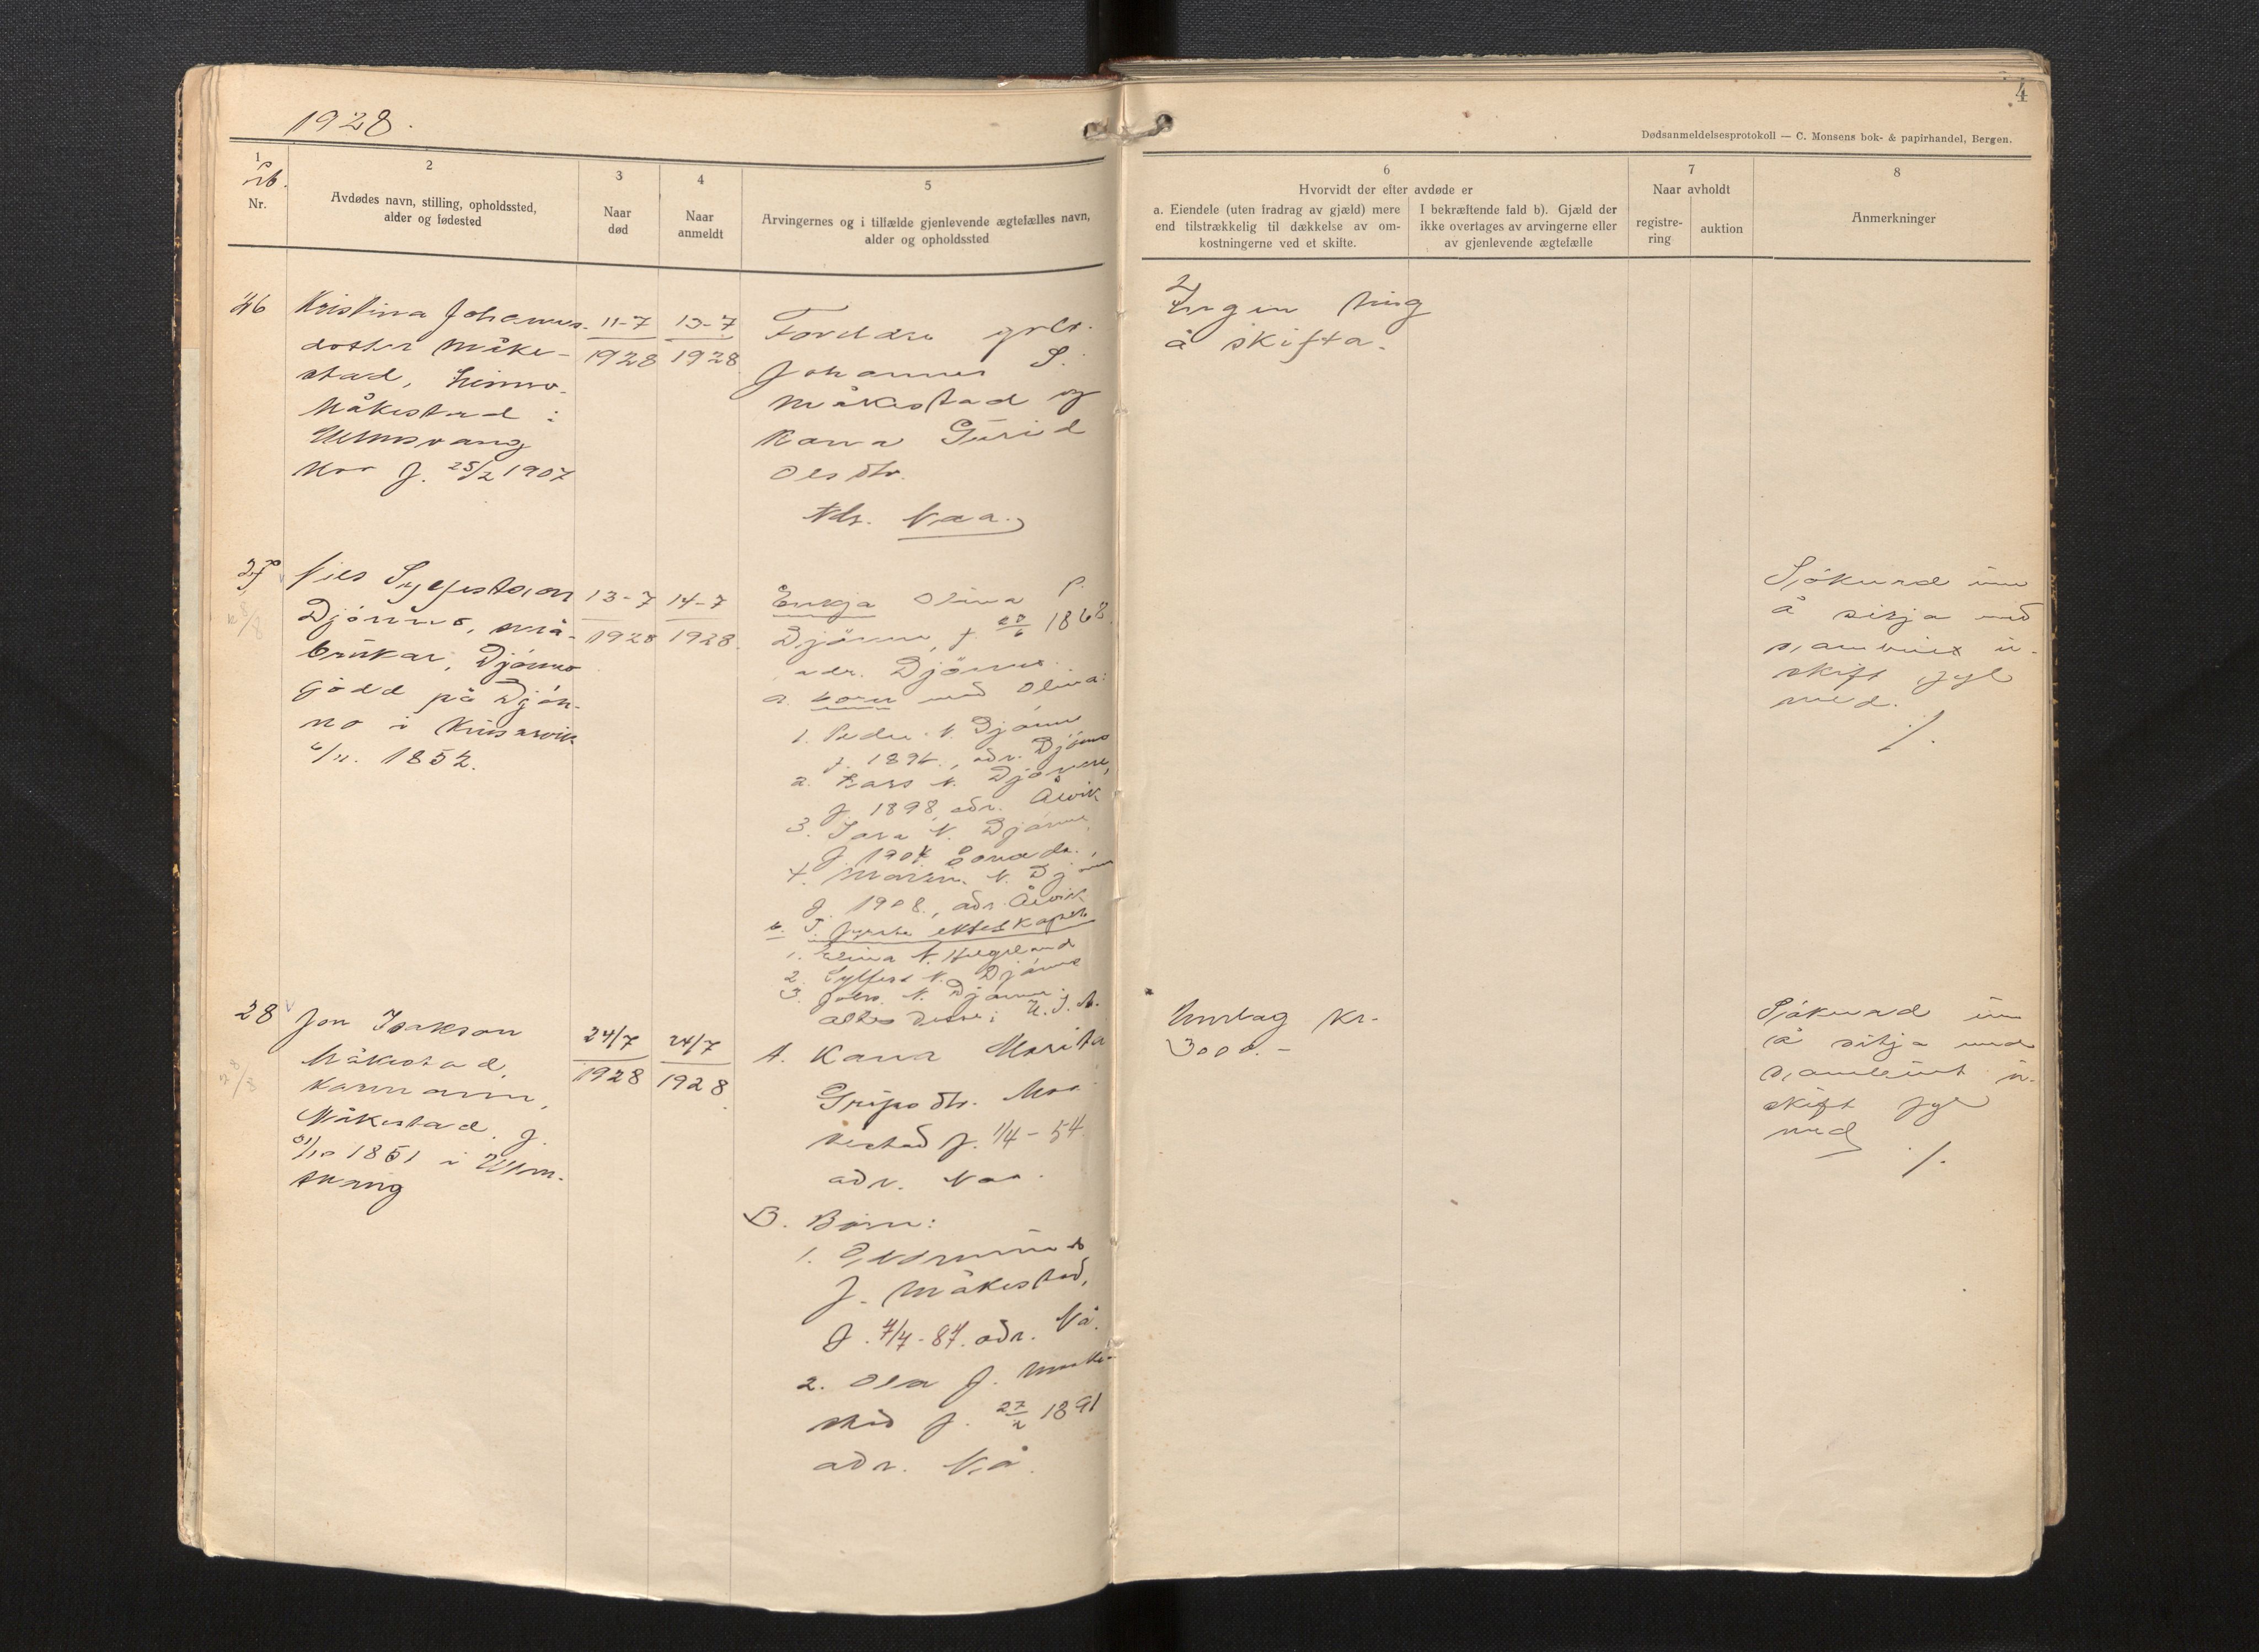 1928.
4
Dødsanmeldelsesprotokoll — C. Monsens bok- & papirhandel, Bergen.
1
Nr.
2
Avdødes navn, stilling, opholdssted,
alder og fødested
3
Naar
død
4
Naar
anmeldt
5
Arvingernes og i tilfælde gjenlevende ægtefælles navn,
alder og opholdssted
6
Hvorvidt der efter avdøde er
a. Eiendele (uten fradrag av gjæld) mere
end tilstrækkelig til dækkelse av om-
kostningerne ved et skifte.
I bekræftende fald b). Gjæld der
ikke overtages av arvingerne eller
av gjenlevende ægtefælle
7
Naar avholdt
registre-
ring
auktion
8
Anmerkninger
26
Kristina Johannes-
dotter Måke-
stad,
Måkestad i
Ullensvang
f. 25/2 1907
11-7
1928
13-7
1928
Foreldre
Johannes S.
Måkestad og
kona Gurid
Olsdtr.
Adr. Naa.
Ingen ting
å skifta.
27
Nils Sylfestson
Djønno, små-
brukar, Djønno
fødd på Djøn-
no i Kinsarvik
6/11. 1852.
13-7
1928
14-7
1928
Enkja Olina P.
Djønne, f. 1868.
adr. Djønno.
a. born med Olina:
1. Peder N. Djønne
f. 1896., adr. Djønno
2. Lars N. Djønne,
f. 1898, adr. Ålvik
3. N. Djønne,
f. 1904
4. N. Djønne
f. 1908., adr. Ålvik
b. I fyrste ekteskapet
1. N.
2. Sylfest N. Djønne
3. N. Djønne.
alle desse i U.S.A.
Søknad um
å sitja med
sambuet u-
skift fylgde
med.
28
Jon Isakson
Måkestad
kårmann,
Måkestad. f.
1851 i Ullen-
svang
24/7
1928
24/7
1928
A. Kona Marita
Gripsdtr. Måke-
stad f. 1/4-54
adr. Naa.
B. Born:
1. Gudmund
J. Måkestad,
f. 7/4-87. adr. Nå.
2. Ola J. Måke-
stad f. 1891
adr. Nå.
Umlag kr.
3000.-
Søknad um
å sitja med
sambuet u-
skift fylgde
med